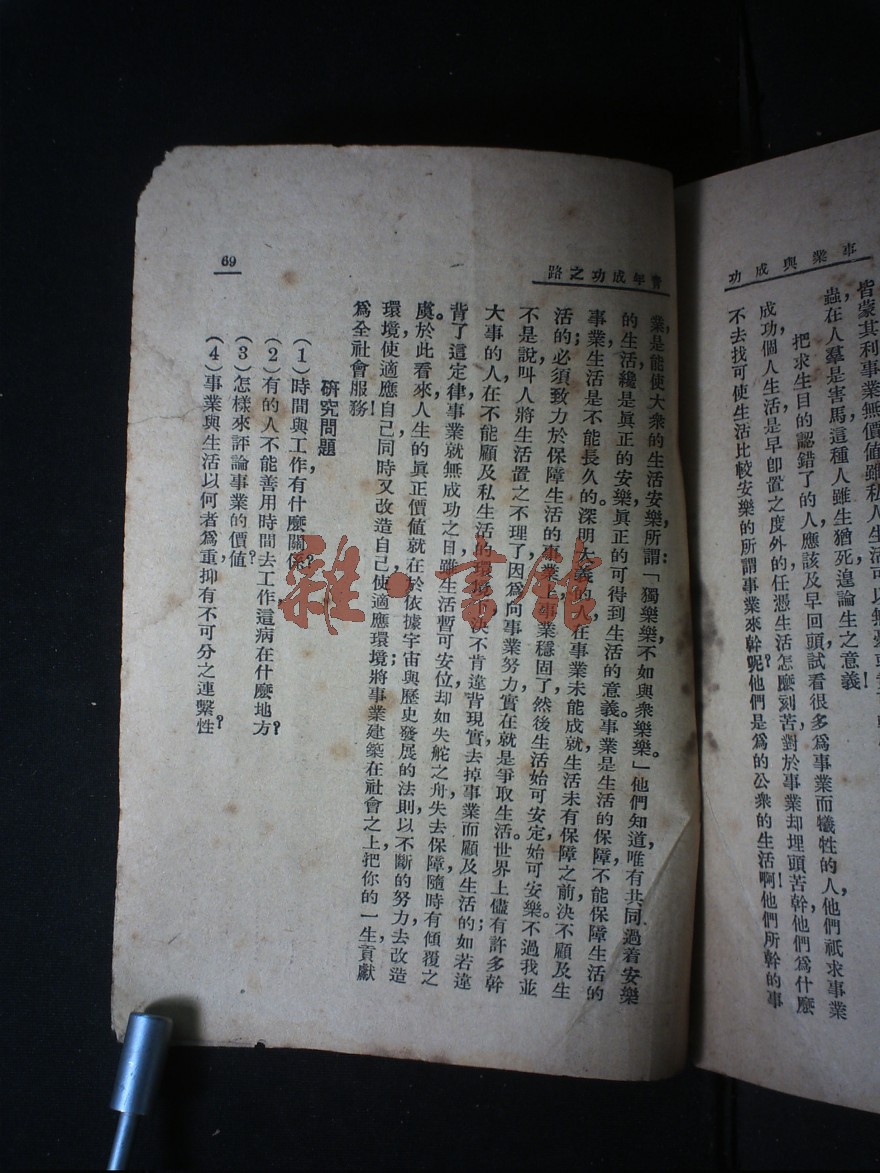 事業與成功
皆蒙其利事業無價値雖私人生活可以無憂
蟲,在人羣是害馬這種人雖生猶死,遑論生之意義!
把求生目的認錯了的人,應該及早回頭試看很多爲事業而犧牲的人,他們祇求事業
成功,個人生活是早卽置之度外的任憑生活怎麽刻苦,對於事業却埋頭苦幹,他們爲什麽
不去找可使生活比較安樂的所謂事業來幹呢?他們是爲的公衆的生活啊!他們所幹的事
靑年成功之路
業,是能使大衆的生活安樂,所謂:「獨樂樂,不如與衆樂樂。」他們知道,唯有共同過着安樂
的生活,纔是眞正的安樂,眞正的可得到生活的意義。事業是生活的保障,不能保障生活的
事業,生活是不能長久的。深明大義的人,在事業未能成就,生活未有保障之前,決不顧及生
活的;必須致力於保障生活的事業上,事業穩固了,然後生活始可安定,始可安樂不過我並
不是說,叫人將生活置之不理了,因爲向事業努力,實在就是爭取生活。世界上儘有許多幹
大事的人,在不能顧及私生活的環境,決不肯違背現實,去掉事業而顧及生活的;如若違
背了這定律,事業就無成功之日,雖生活暫可安位,却如失舵之舟,失去保障,隨時有傾覆之
虞。於此看來,人生的眞正價値,就在於依據宇宙與歷史發展的法則,以不斷的努力,去改造
環境,使適應自己,同時又改造自己,使適應環境;將事業建築在社會之上,把你的一生,貢獻
爲全社會服務!
硏究問題
(1)時間與工作,有什麽關係?
(2)有的人不能善用時間去工作,這病在什麽地方?
(3)怎樣來評論事業的價値?
(4)事業與生活以何者爲重,抑有不可分之連繫性?
69
雜·書館